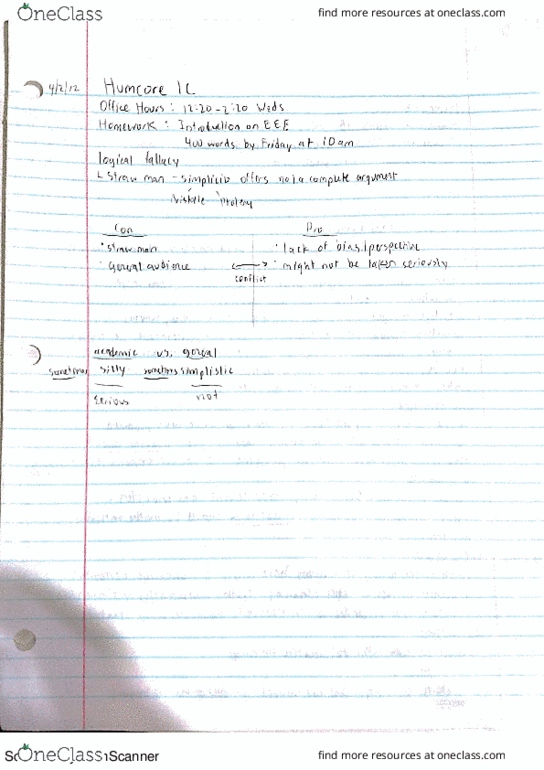 OneClass
find more resources at oneclass.com
4/2/12 Humcore 1C
Office Hours: 12:20-2:20 Weds
Homework: Introduction on
400 words by Friday at 10am
logical fallacy
straw man - simplicio offers not a complete argument
Con Pro
straw man lack of bias/perspective
general audience might not be taken seriously
conflict
academic vs. general
sometimes silly sometimes simplistic
serious not
OneClass Scanner
find more resources at oneclass.com